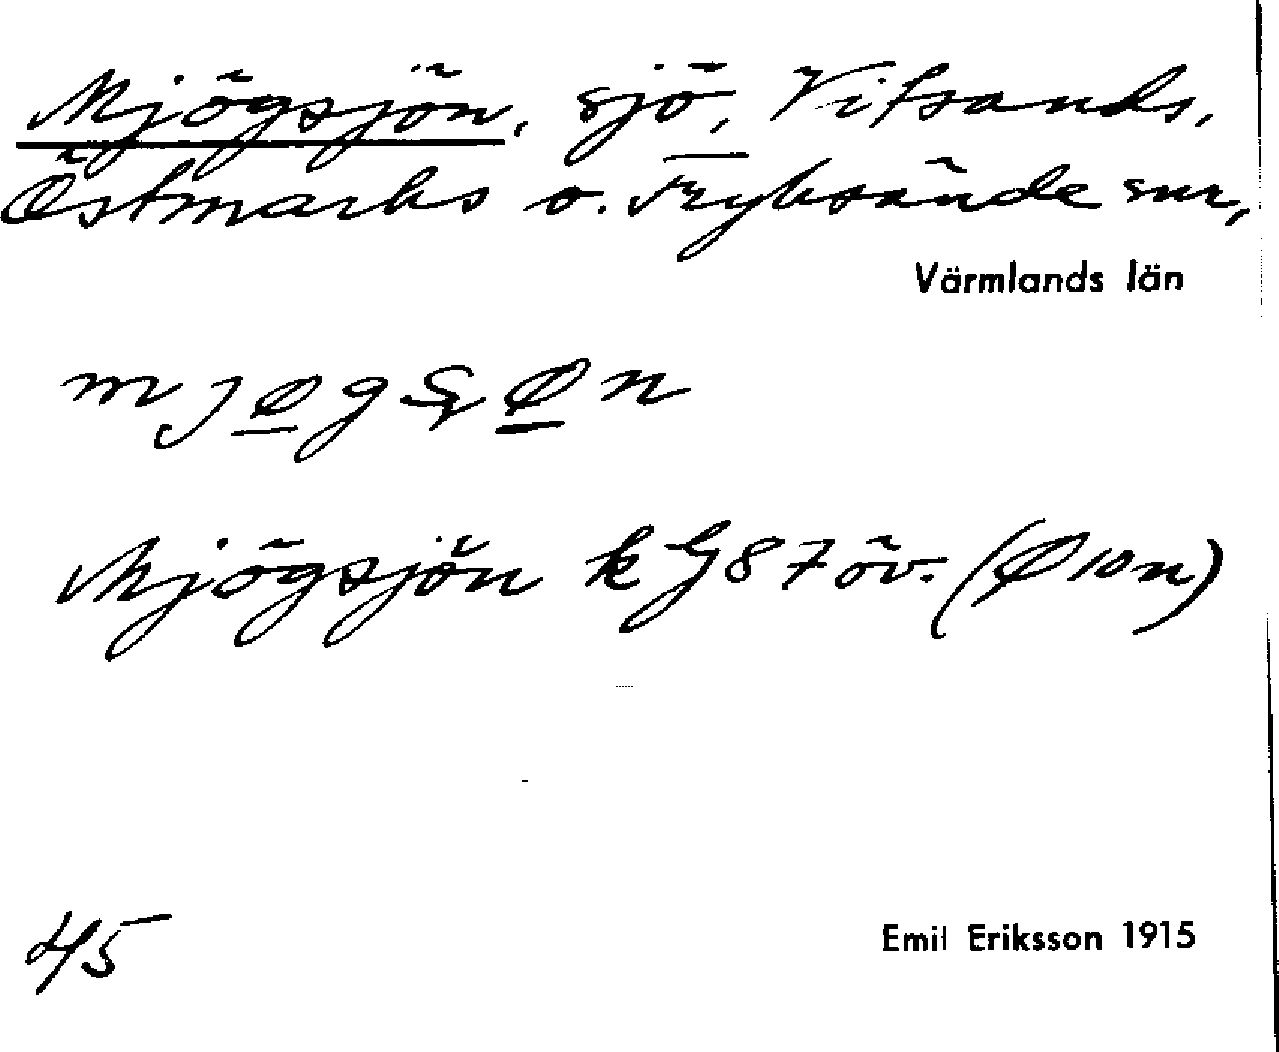 Mjögsjön, sjö, Vitsands,
Östmarks o. Fryksände snr,
Värmlands län
m j ø g ʂ ø n
Mjögsjön k G 87 öv. (Ø 10 n)
45
Emil Eriksson 1915